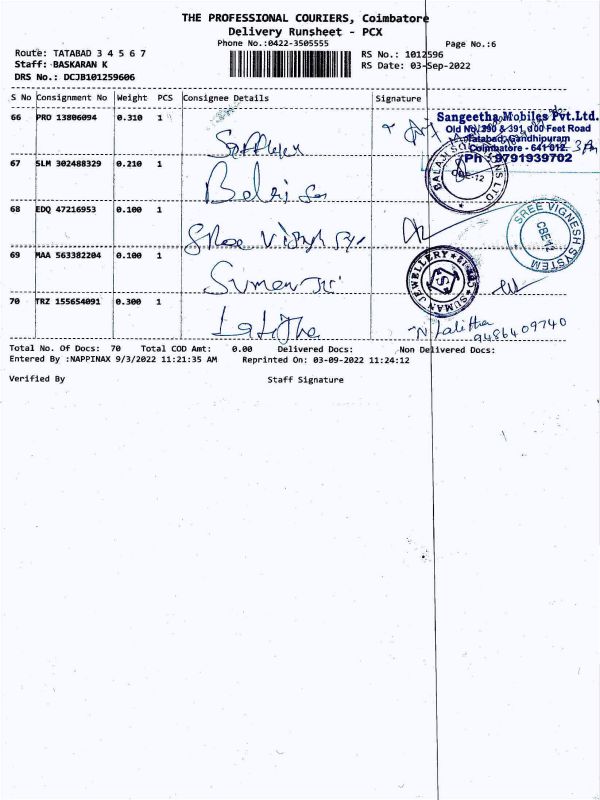 THE PROFESSIONAL COURIERS, Coimbatore
Delivery Runsheet - PCX
Phone No.:0422-3505555
Page No.:6
Route: TATABAD 3 4 5 6 7
RS No.: 1012596
Staff: BASKARAN K
RS Date: 03-Sep-2022
DRS No.: DCJB101259606
S No Consignment No Weight PCS Consignee Details Signature
66 PRO 13806094 0.310 1
Sangeetha Mobiles Pvt.Ltd.
Old No.390 & 391, 100 Feet Road
Tatabad, Gandhipuram
Coimbatore - 641 012
Ph : 9791939702
67 SLM 302488329 0.210 1 Balaji
68 EDQ 47216953 0.100 1 Sree
SREE VIGNESH SYSTEM
CBE-12
69 MAA 563382204 0.100 1 Suman
SUMAN JEWELLERY
70 TRZ 155654091 0.300 1 Lalitha
N Lalitha
9486409740
Total No. Of Docs: 70 Total COD Amt: 0.00 Delivered Docs: Non Delivered Docs:
Entered By :NAPPINAX 9/3/2022 11:21:35 AM Reprinted On: 03-09-2022 11:24:12
Verified By Staff Signature